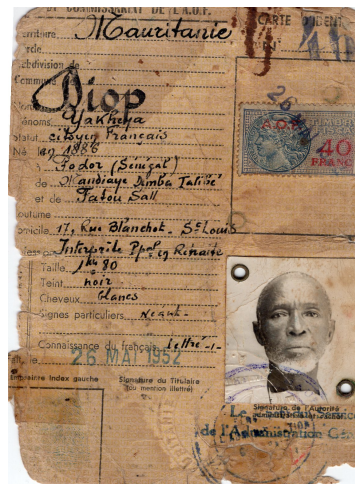 COMMISSARIAT DE L'A.O.F.
CARTE D'IDENT
Territoire Mauritanie
N°
Cercle
Subdivision de
Commune
Diop
Prénoms Yakheya
Statut citoyen Français
Né en 1886
26 MAI
A.O.F.
TIMBRE
FISCAL
40
FRANCS
Podor (Sénégal)
de Mandiaye Dimba Talibé
et de Fatou Sall
Coutume
Domicile 17, Rue Blanchot. St Louis
Interprète Ppal en Retraite
Taille 1m80
Teint noir
Cheveux blancs
Signes particuliers Néant
Connaissance du français lettré
le 26 MAI 1952
Empreinte Index gauche
Signature du Titulaire
(ou mention illettré)
Signature de l'Autorité
Le
de l'Administration